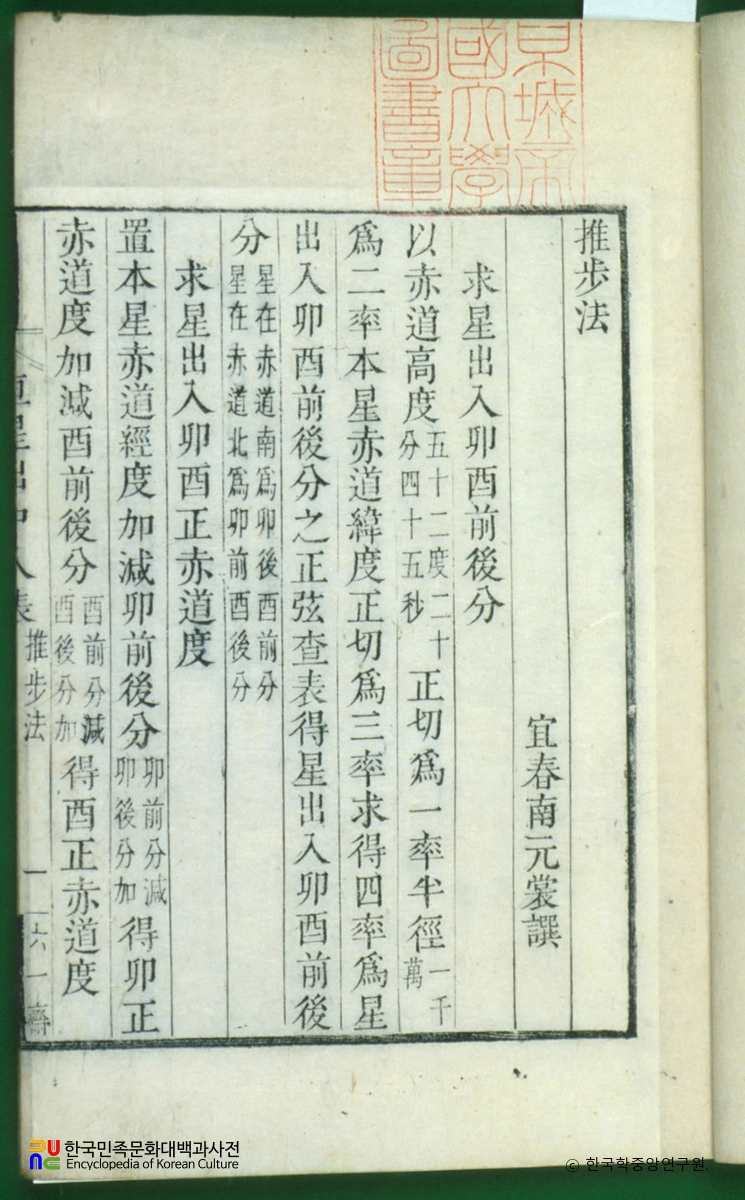 京城帝
國大學
圖書章
推步法
宜春南元裳譔
求星出入卯酉前後分
以赤道高度五十二度二十分四十五秒正切爲一率半徑一千萬
爲二率本星赤道緯度正切爲三率求得四率爲星
出入卯酉前後分之正弦查表得星出入卯酉前後
分星在赤道南爲卯後酉前分星在赤道北爲卯前酉後分
求星出入卯酉正赤道度
置本星赤道經度加減卯前後分卯前分減卯後分加得卯正
赤道度加減酉前後分酉前分減酉後分加得酉正赤道度
恒星出中入表 推步法 一 六一齋
한국민족문화대백과사전
Encyclopedia of Korean Culture
© 한국학중앙연구원.